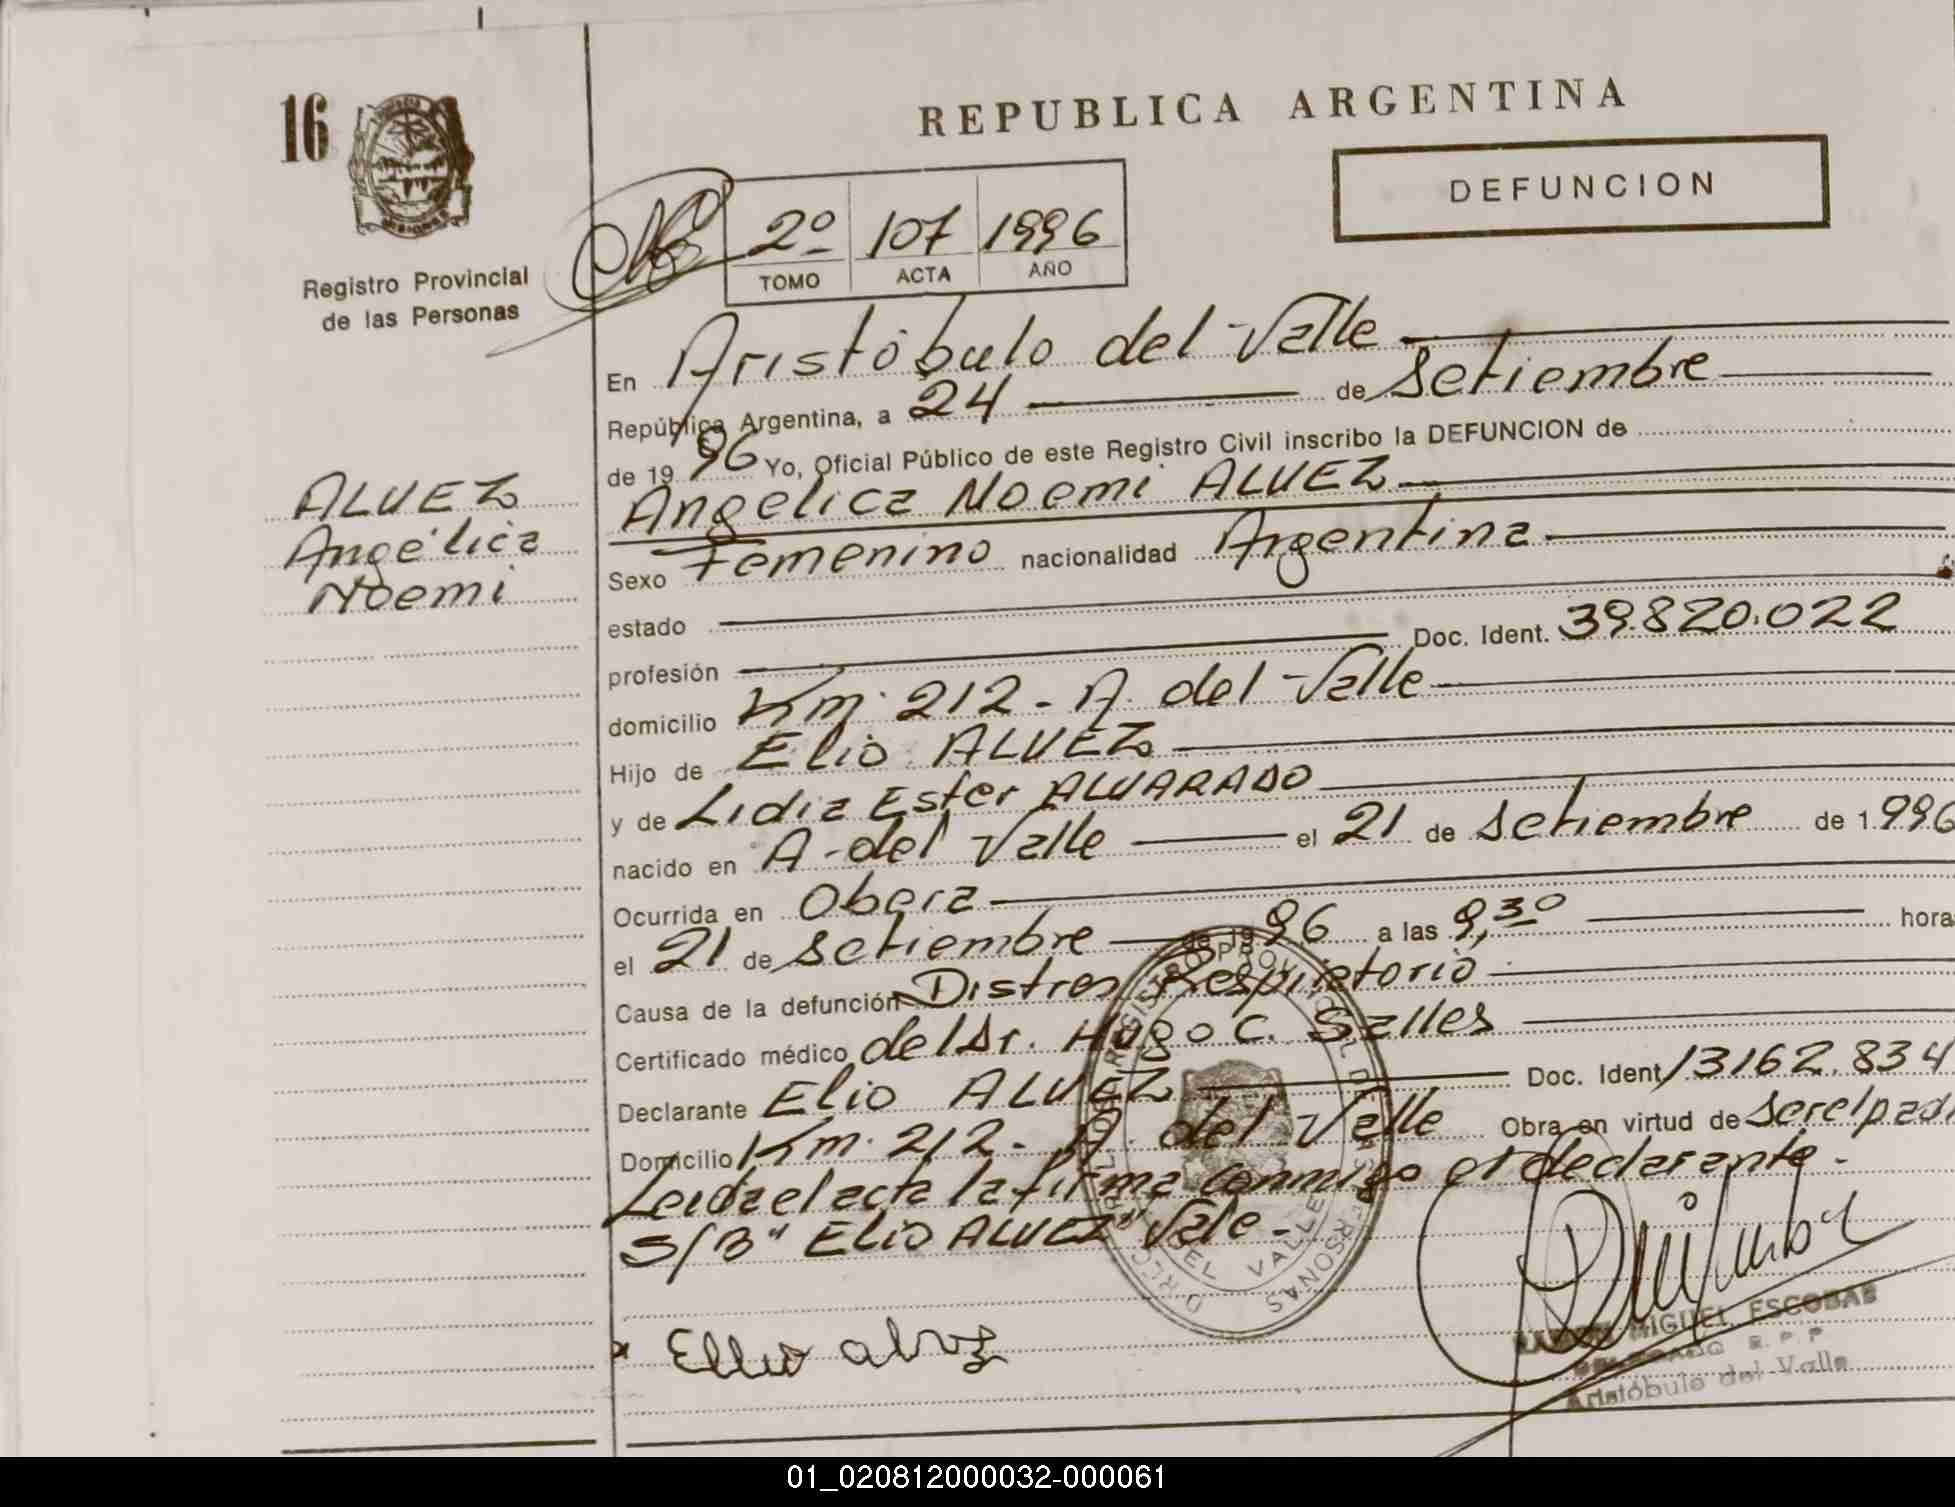 16
REPUBLICA ARGENTINA
DEFUNCION
2º 107 1996
TOMO ACTA AÑO
Registro Provincial
de las Personas
ALVEZ
Angélica
Noemi
En Aristóbulo del Valle
República Argentina, a 24 de Setiembre
de 19 96 Yo, Oficial Público de este Registro Civil inscribo la DEFUNCION de
Angelica Noemi ALVEZ
Sexo Femenino nacionalidad Argentina
estado
profesión Doc. Ident. 39.820.022
domicilio Km. 212 - A. del Valle
Hijo de Elio ALVEZ
y de Lidia Ester ALVARADO
nacido en A. del Valle el 21 de Setiembre de 1.996
Ocurrida en Obera
el 21 de Setiembre de 19 96 a las 9,30 hora
Causa de la defunción Distres Respiratorio
Certificado médico del Dr. Hugo C. Salles
Declarante Elio ALVEZ Doc. Ident 13162.834
Domicilio Km. 212 - A. del Valle Obra en virtud de ser el padr
Leida el acta la firma conmigo el declarante.-
S/B "ELIO ALVEZ" Vale.-
DEL VALLE
Ellio alvez
MIGUEL ESCOBAR
DELEGADO R.P.P
Aristóbulo del Valle
01_020812000032-000061